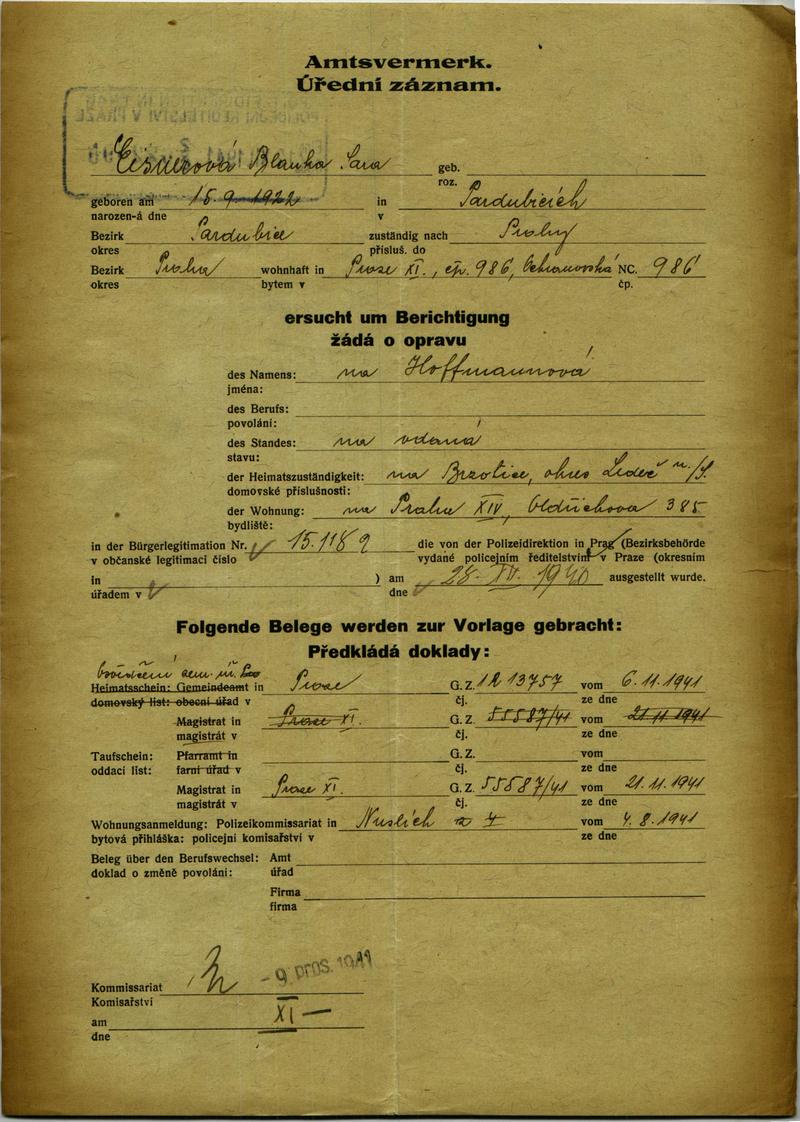 Amtsvermerk.
Úřední záznam.
Eisnerová Blanka Sara geb.
roz.
geboren am 15.9.1922 in Pardubicích
narozen-á dne v
Bezirk Pardubice zuständig nach Prahy
okres přísluš. do
Bezirk Praha wohnhaft in Praze XI., čp. 986, NC. 986
okres bytem v čp.
ersucht um Berichtigung
žádá o opravu
des Namens: na Hoffmannová
jména:
des Berufs:
povolání:
des Standes: na vdaná
stavu:
der Heimatszuständigkeit: na Brzotice, okres Ledeč n./S.
domovské příslušnosti:
der Wohnung: na Praha XIV, Oldřichova 385
bydliště:
in der Bürgerlegitimation Nr. 15.1189 die von der Polizeidirektion in Prag (Bezirksbehörde
v občanské legitimaci číslo vydané policejním ředitelstvím v Praze (okresním
in ) am 28. XI. 1940 ausgestellt wurde.
úřadem v dne
Folgende Belege werden zur Vorlage gebracht:
Předkládá doklady:
Heimatsschein: Gemeindeamt in Praze G. Z. 1213757 vom 6.11.1941
domovský list: obecní úřad v čj. ze dne
Magistrat in Praze XI. G. Z. 55587/41 vom 21.11.1941
magistrát v čj. ze dne
Taufschein: Pfarramt in G. Z. vom
oddací list: farní úřad v čj. ze dne
Magistrat in Praze XI. G. Z. 55587/41 vom 21.11.1941
magistrát v čj. ze dne
Wohnungsanmeldung: Polizeikommissariat in Nuslích vom 4.8.1941
bytová přihláška: policejní komisařství v ze dne
Beleg über den Berufswechsel: Amt
doklad o změně povolání: úřad
Firma
firma
- 9. pros. 1941
Kommissariat
Komisařství
XI
am
dne